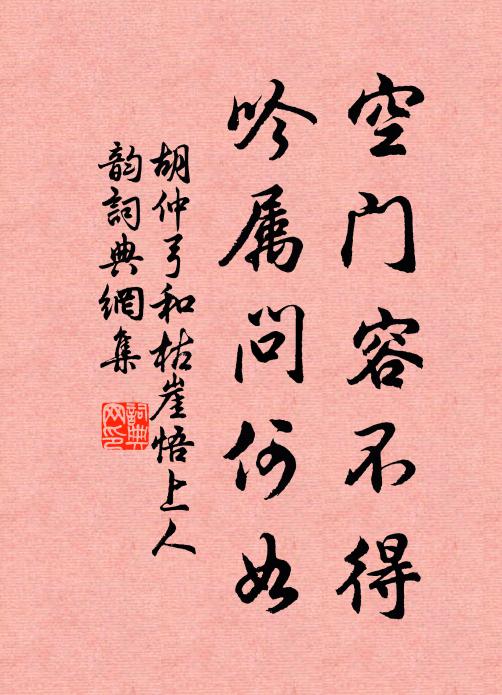 空门容不得
吟属问何如
胡仲弓和枯崖悟上人
韵詞典網集
詞典网印